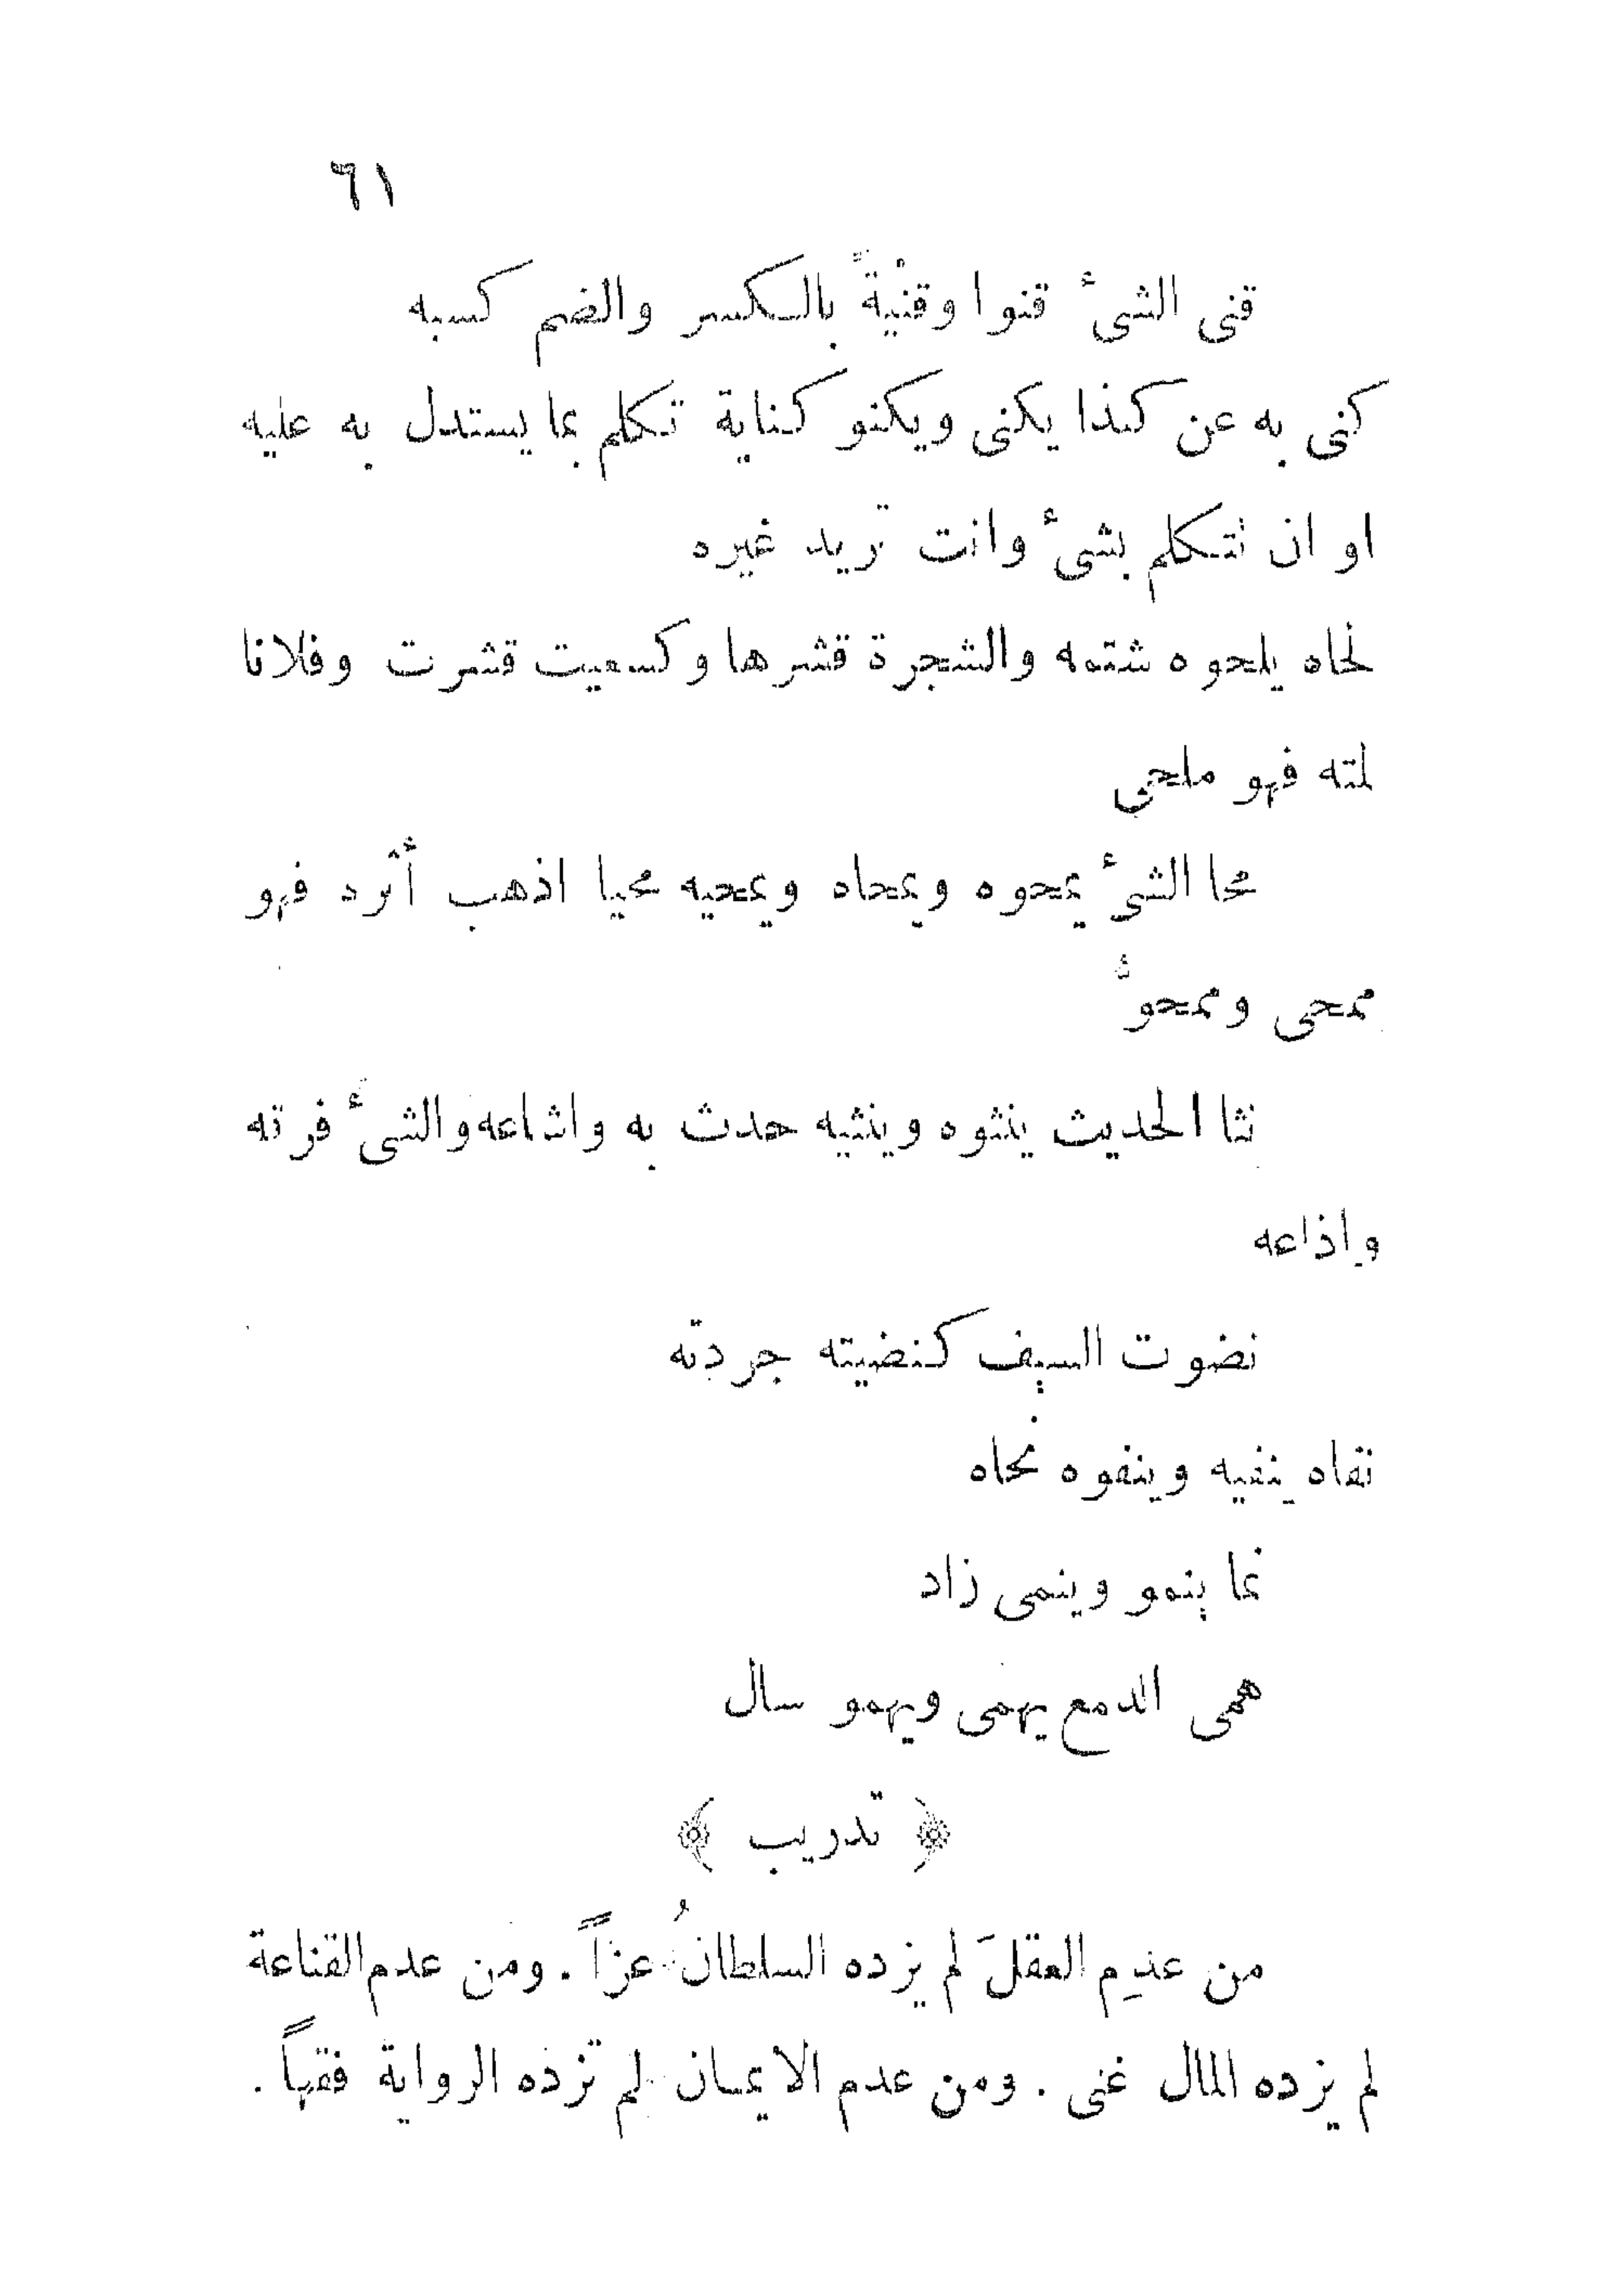 ٦١
قنى الشئ قنوا وقنْيةً بالكسر والضم كسبه
كنى به عن كذا يكنى ويكنو كناية تكلم بما يستدل به عليه
او ان تتكلم بشئ وانت تريد غيره
لحاه يلحوه شتمه والشجرة قشرها وكسميت قشرت وفلانا
لمته فهو ملحى
محا الشئ يمحوه ويمحاه ويمحيه محيا اذهب أثره فهو
ممحى وممحوٌّ
نثا الحديث ينثوه وينثيه حدث به واشاعه والشئ فرقه
واذاعه
نضوت السيف كنضيته جردته
نفاه ينفيه وينفوه نحاه
نما ينمو وينمى زاد
همى الدمع يهمى ويهمو سال
﴿ تدريب ﴾
من عدِم العقلَ لم يزده السلطانُ عزاً . ومن عدم القناعة
لم يزده المال غنى . ومن عدم الايمان لم تزده الرواية فقهاً .